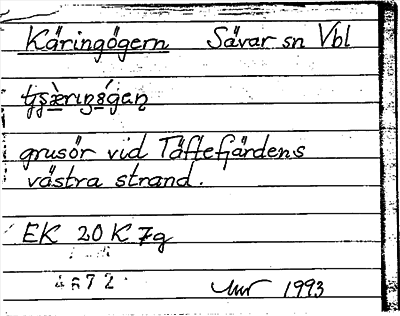 Käringögern Sävar sn Vbl
grusör vid Täftefjärdens
västra strand.
EK 20 K 7g
4672
1993